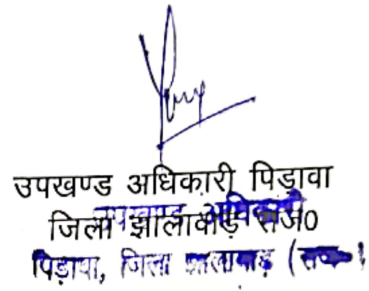 उपखण्ड अधिकारी पिड़ावा
जिला झालावाड़ राज0
उपखण्ड अधिकारी
पिड़ावा, जिला झालावाड़ (राज०)